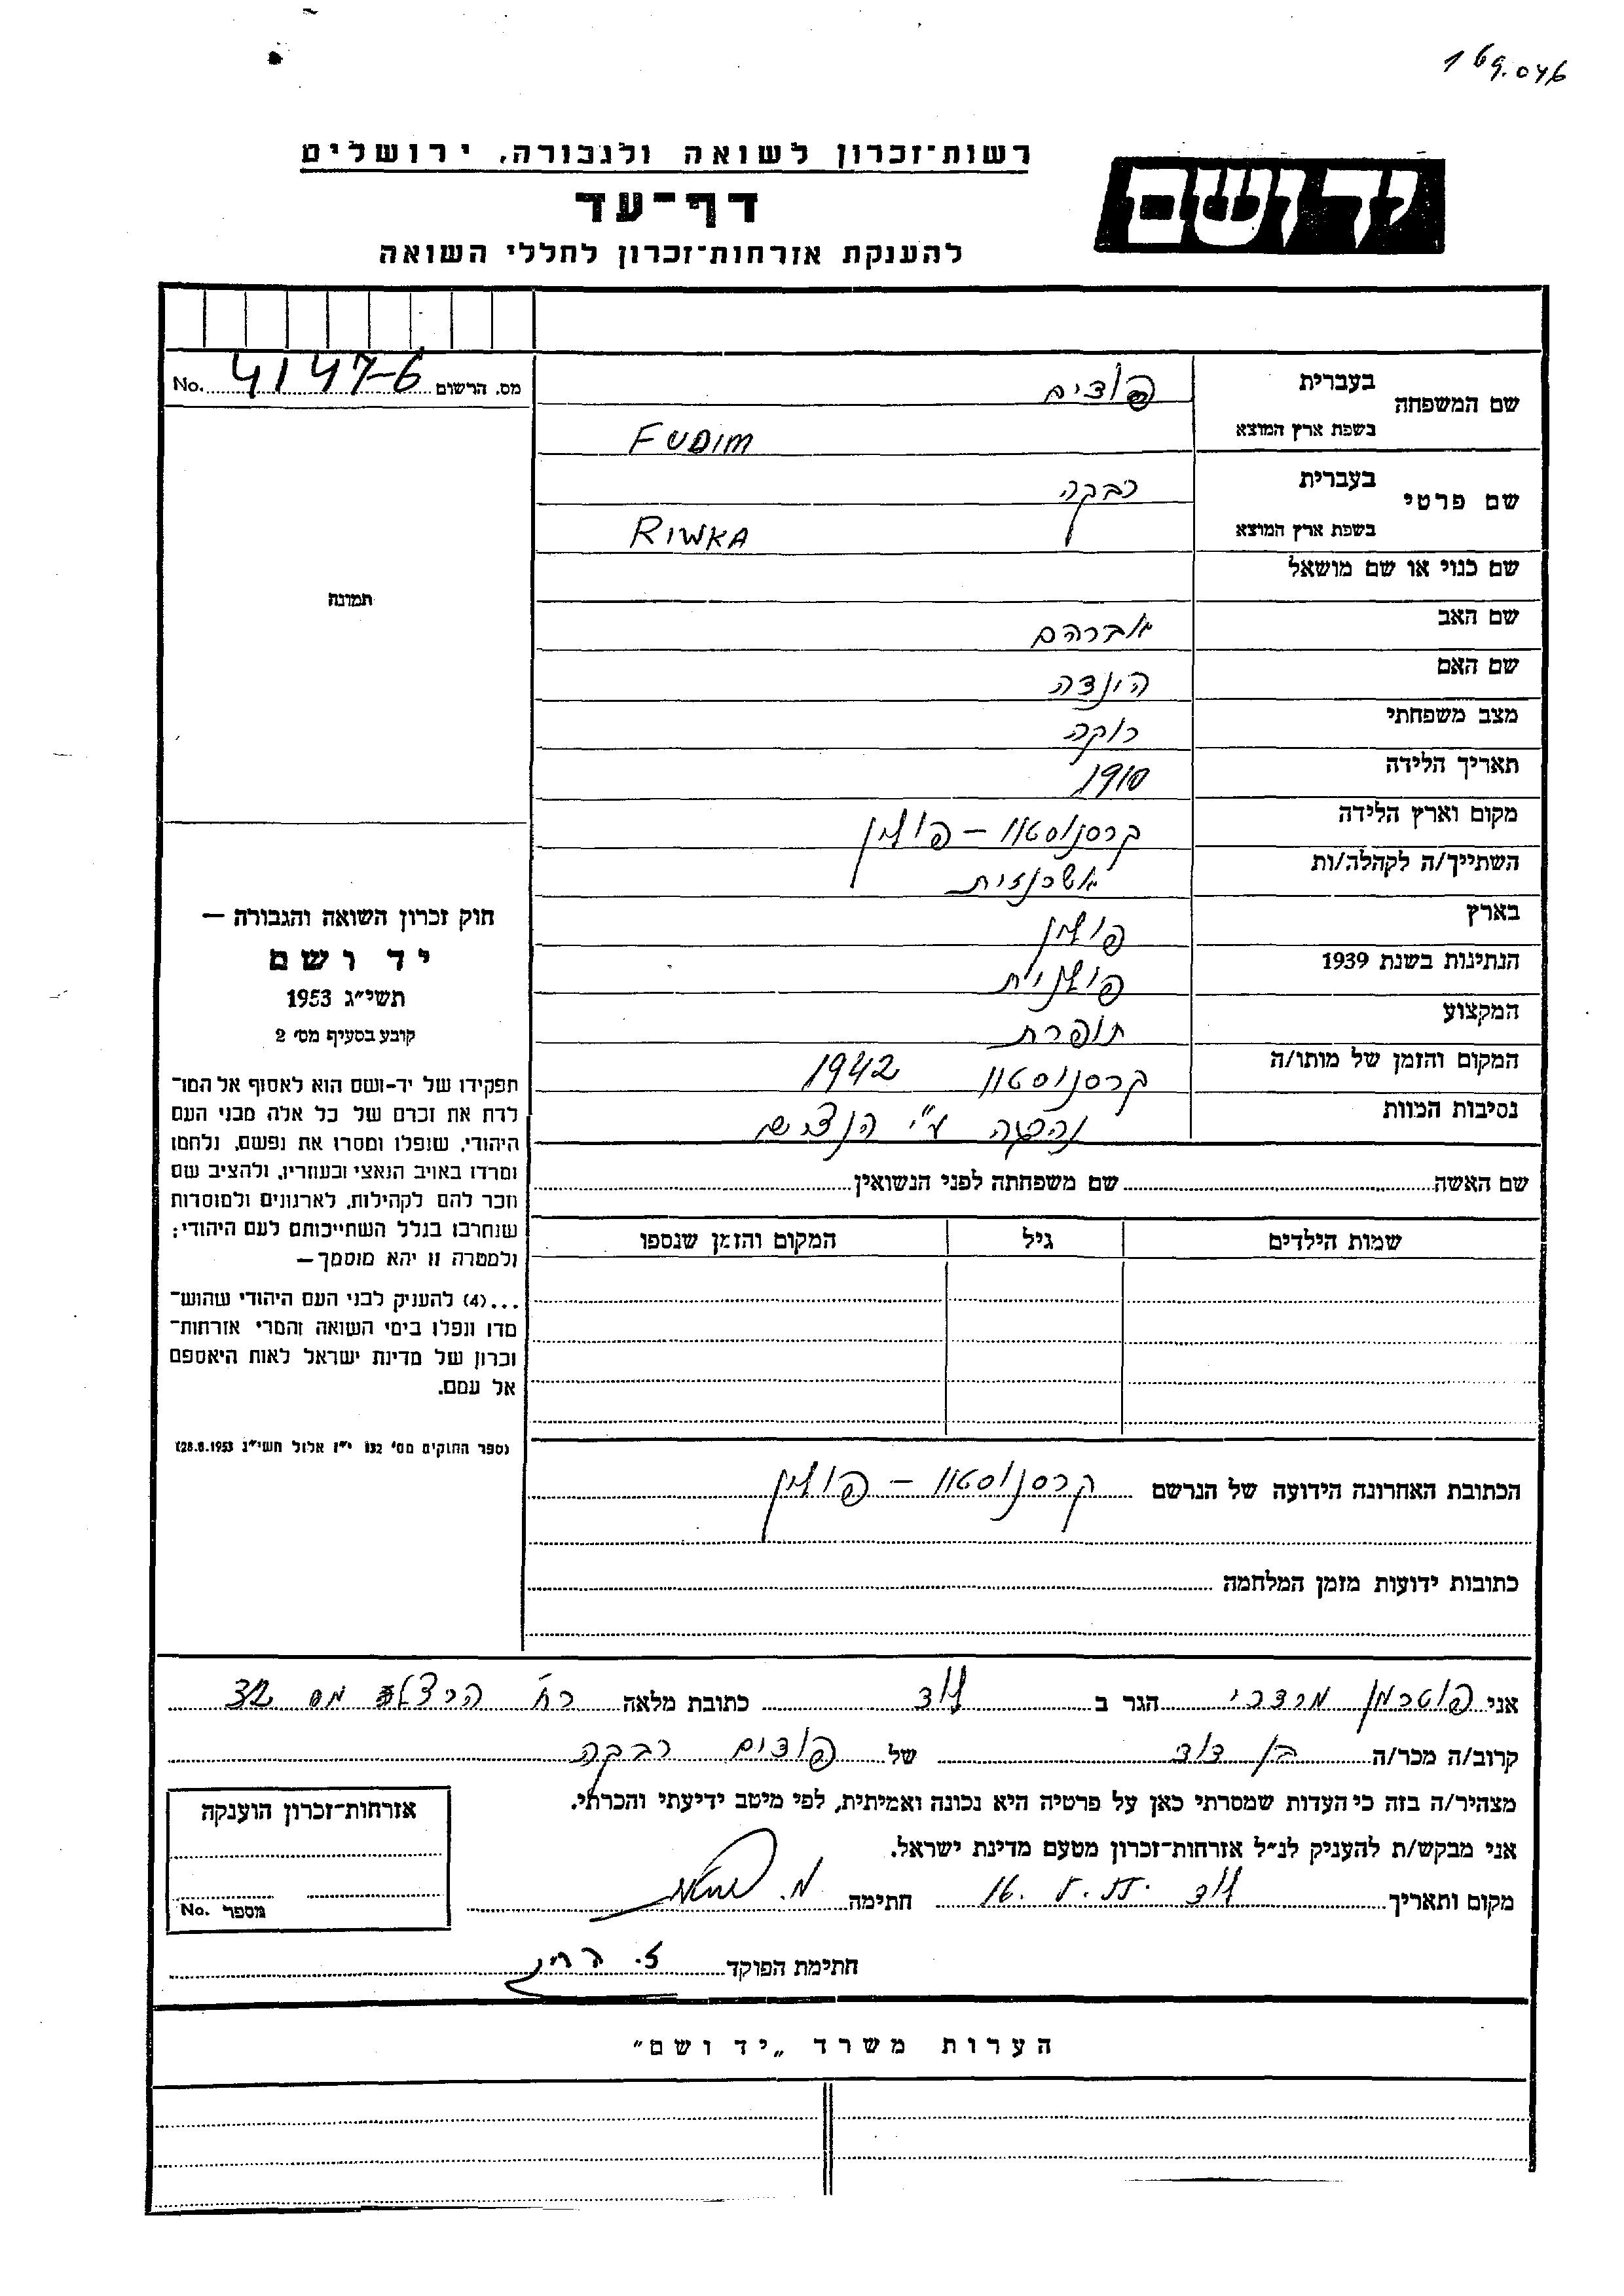 169.046
רשות־זכרון לשואה ולגבורה, ירושלים
יד ושם
דף־עד
להענקת אזרחות־זכרון לחללי השואה
מס. הרשום 4147-6 No.
שם המשפחה בעברית פודים
בשפת ארץ המוצא FUDIM
שם פרטי בעברית רבקה
בשפת ארץ המוצא RIWKA
שם כנוי או שם מושאל
שם האב אברהם
שם האם הינדה
מצב משפחתי רוקה
תאריך הלידה 1910
מקום וארץ הלידה קרסנוסטוו – פולין
השתייך/ה לקהלה/ות אשכנזית
בארץ פולין
הנתינות בשנת 1939 פולנית
המקצוע תופרת
המקום והזמן של מותו/ה קרסנוסטוו 1942
נסיבות המוות נהרגה ע"י הנצים
תמונה
חוק זכרון השואה והגבורה —
יד ושם
תשי״ג 1953
קובע בסעיף מס׳ 2
תפקידו של יד-ושם הוא לאסוף אל המו־
לדת את זכרם של כל אלה מבני העם
היהודי, שנפלו ומסרו את נפשם, נלחמו
ומרדו באויב הנאצי ובעוזריו, ולהציב שם
וזכר להם לקהילות, לארגונים ולמוסדות
שנחרבו בגלל השתייכותם לעם היהודי;
ולמטרה זו יהא מוסמך —
...(4) להעניק לבני העם היהודי שהוש־
מדו ונפלו בימי השואה והמרי אזרחות־
זכרון של מדינת ישראל לאות היאספם
אל עמם.
(ספר החוקים מס׳ 132 י״ז אלול תשי״ג 28.8.1953)
שם האשה שם משפחתה לפני הנשואין
שמות הילדים גיל המקום והזמן שנספו
הכתובת האחרונה הידועה של הנרשם קרסנוסטוו – פולין
כתובות ידועות מזמן המלחמה
אני פוטרמן מרדכי הגר ב לוד כתובת מלאה רח' הרצל מס 32
קרוב/ה מכר/ה בן דוד של פודים רבקה
מצהיר/ה בזה כי העדות שמסרתי כאן על פרטיה היא נכונה ואמיתית, לפי מיטב ידיעתי והכרתי.
אני מבקש/ת להעניק לנ״ל אזרחות־זכרון מטעם מדינת ישראל.
מקום ותאריך לוד חתימה מ.
חתימת הפוקד
אזרחות־זכרון הוענקה
מספר No.
הערות משרד „יד ושם״